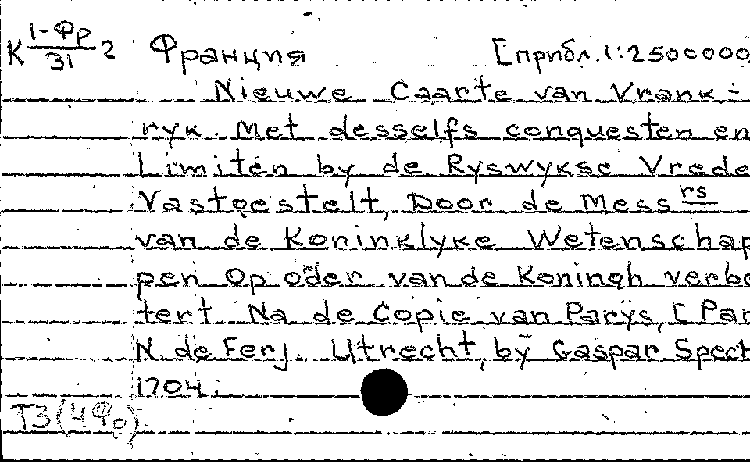 К 1-Фр/31 2 Франция [прибл. 1:2500000
Nieuwe Caarte van Vrank-
ryk. Met desselfs conquesten en
Limiten by de Ryswykse Vrede
Vastgestelt, Door de Mess rs
van de Koninklyke Wetenschap
pen Op oder van de Koningh verbe
tert Na de Copie van Parys, [Par
N. de Fer]. Utrecht, by Gaspar Spect
1704.
T3(4Фр)